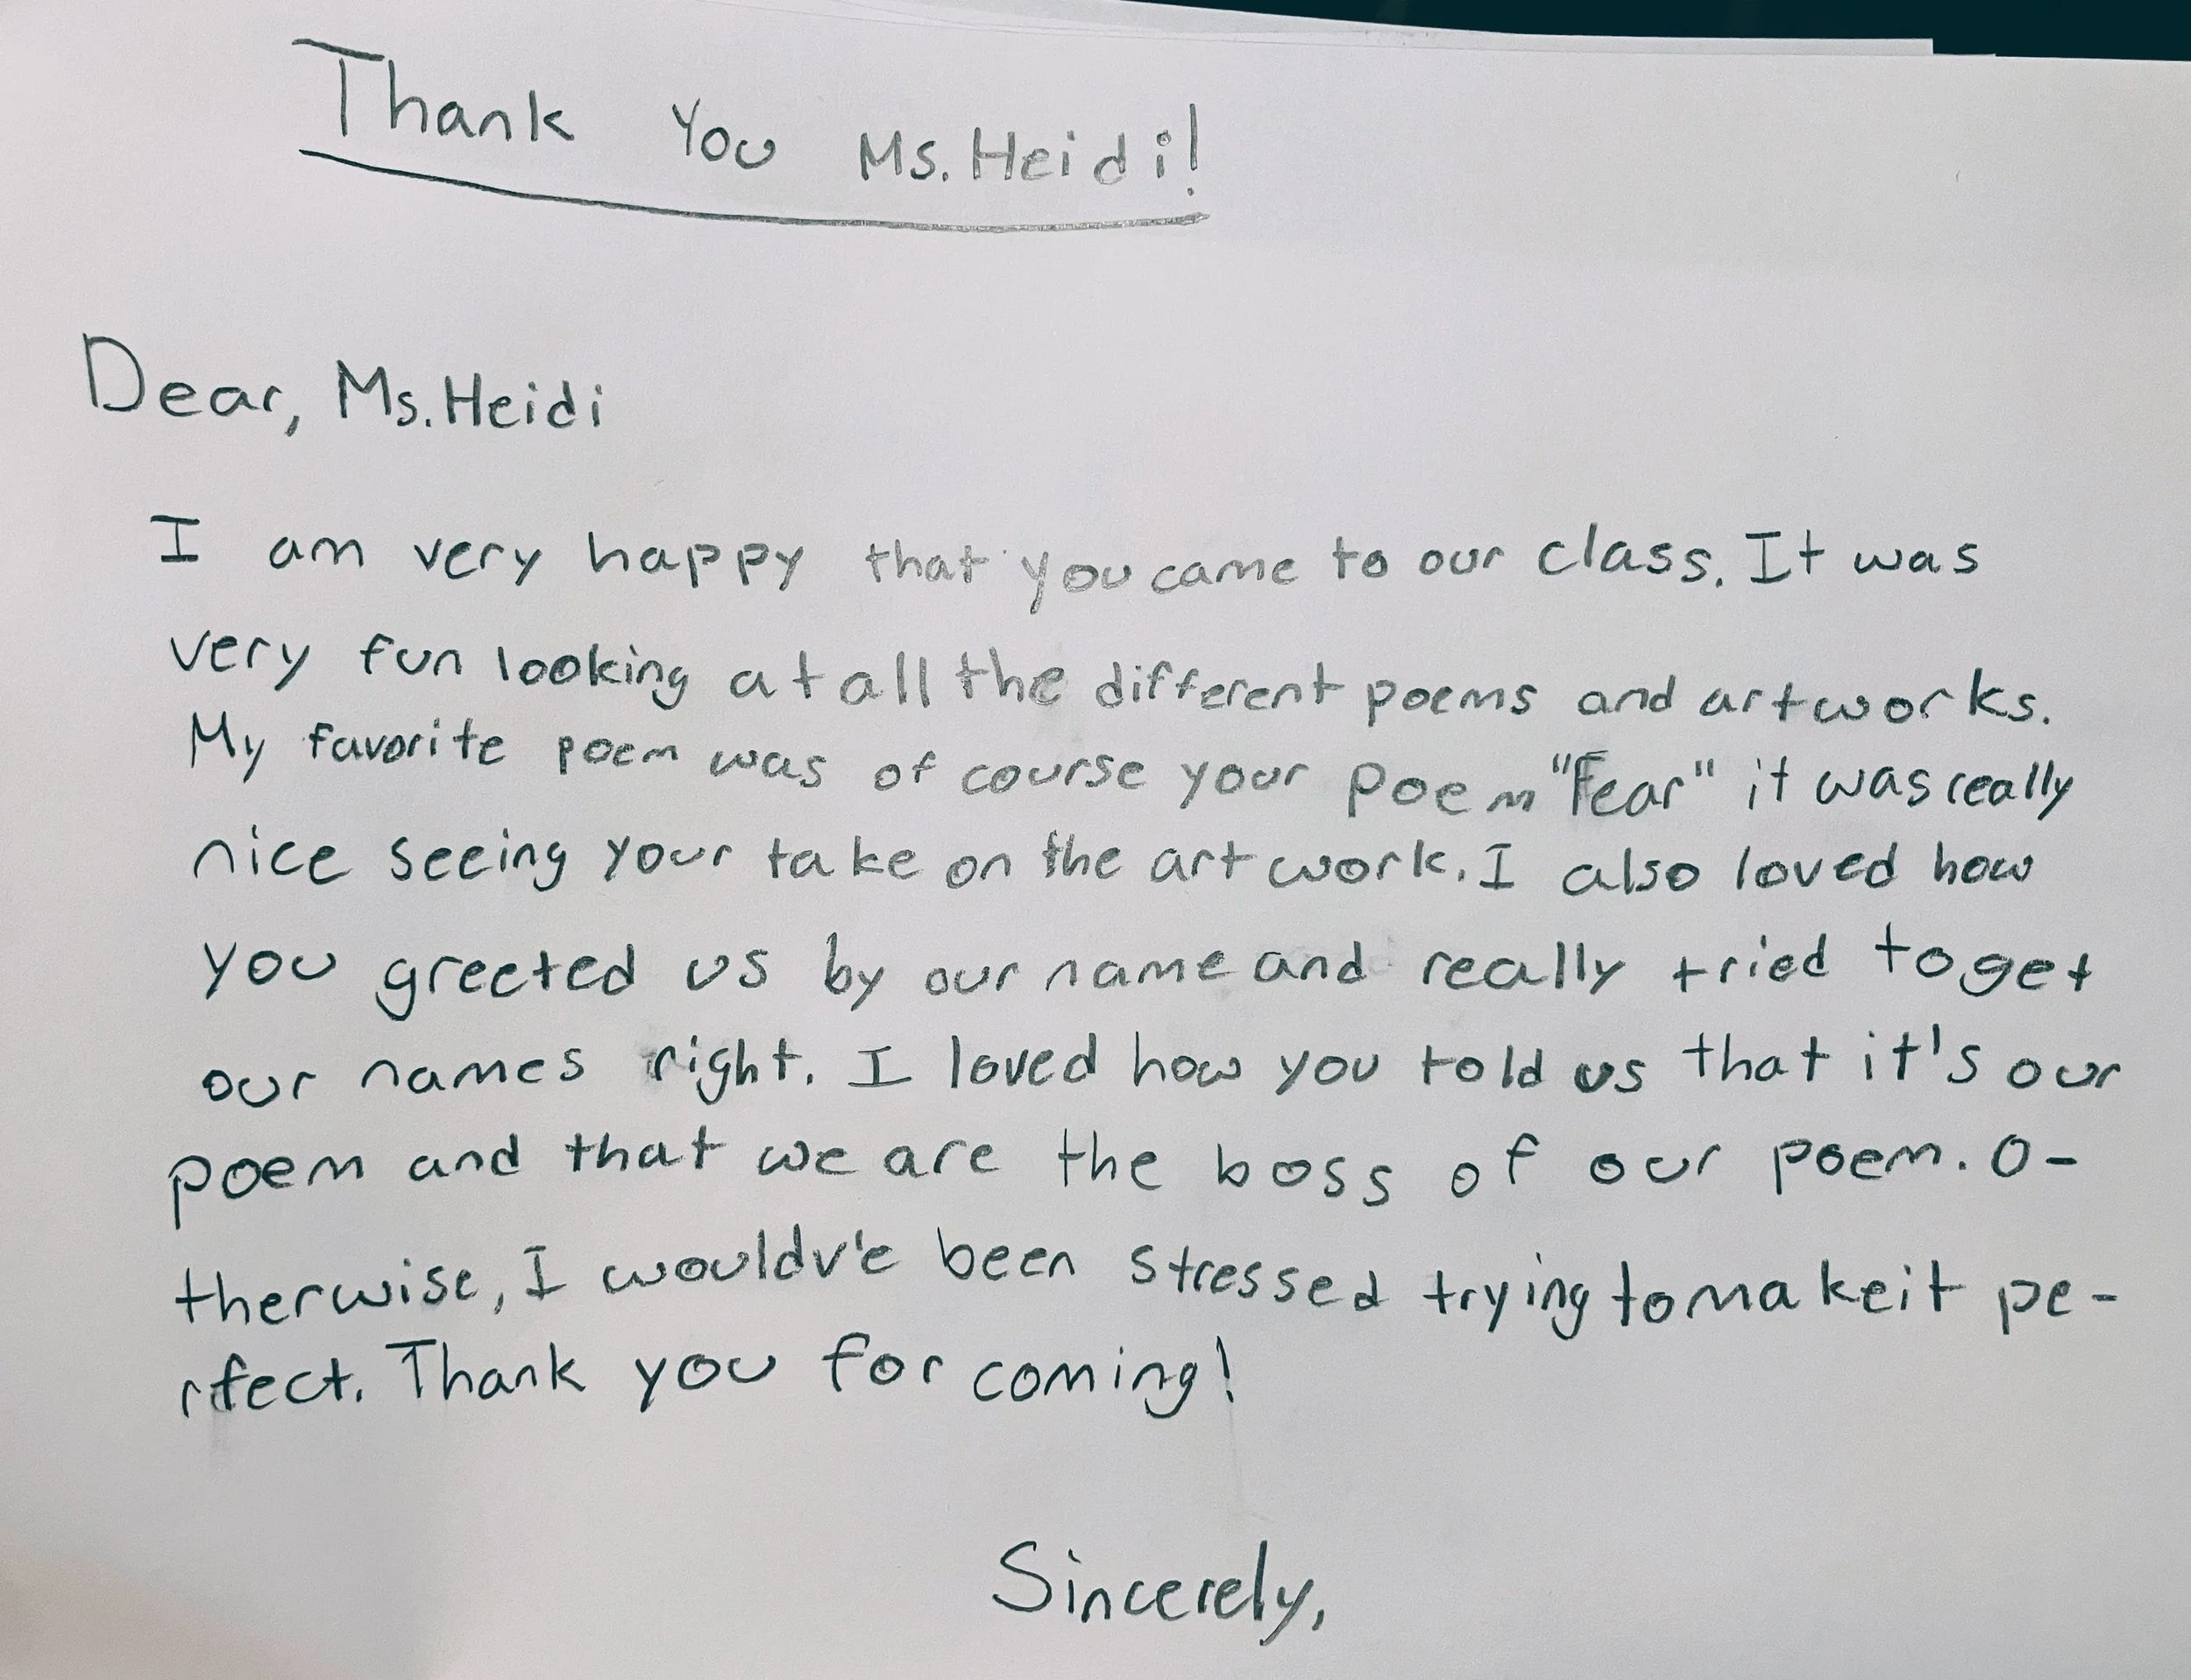 Thank You Ms. Heidi!
Dear, Ms. Heidi
I am very happy that you came to our class. It was
very fun looking at all the different poems and artworks.
My favorite poem was of course your poem "Fear" it was really
nice seeing your take on the art work. I also loved how
you greeted us by our name and really tried to get
our names right. I loved how you told us that it's our
poem and that we are the boss of our poem. O-
therwise, I wouldv'e been stressed trying to make it pe-
rfect. Thank you for coming!
Sincerely,